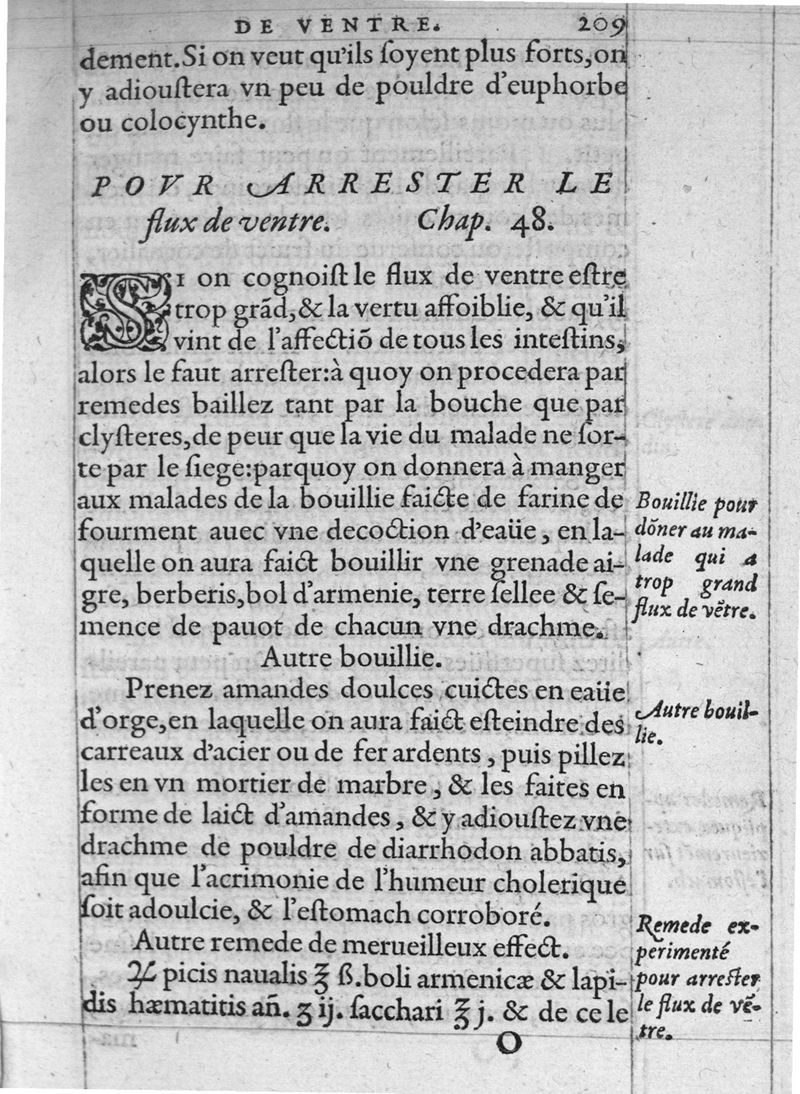 DE VENTRE. 209
dement. Si on veut qu'ils ſoyent plus forts, on
y adiouſtera vn peu de pouldre d'euphorbe
ou colocynthe.
POVR ARRESTER LE
flux de ventre. Chap. 48.
SI on cognoiſt le flux de ventre eſtre
trop grãd, & la vertu affoiblie, & qu'il
vint de l'affectiõ de tous les inteſtins,
alors le faut arreſter: à quoy on procedera par
remedes baillez tant par la bouche que par
clyſteres, de peur que la vie du malade ne ſor-
te par le ſiege: parquoy on donnera à manger
aux malades de la bouillie faicte de farine de
fourment auec vne decoction d'eaüe, en la-
quelle on aura faict bouillir vne grenade ai-
gre, berberis, bol d'armenie, terre ſellee & ſe-
mence de pauot de chacun vne drachme.
Bouillie pour
dõner au ma-
lade qui a
trop grand
flux de vẽtre.
Autre bouillie.
Prenez amandes doulces cuictes en eaüe
d'orge, en laquelle on aura faict eſteindre des
carreaux d'acier ou de fer ardents, puis pillez
les en vn mortier de marbre, & les faites en
forme de laict d'amandes, & y adiouſtez vne
drachme de pouldre de diarrhodon abbatis,
afin que l'acrimonie de l'humeur cholerique
ſoit adoulcie, & l'eſtomach corroboré.
Autre bouil-
lie.
Autre remede de merueilleux effect.
♃ picis naualis ℥ ß. boli armenicæ & lapi-
dis hæmatitis añ. ʒ ij. ſacchari ℥ j. & de ce le
Remede ex-
perimenté
pour arreſter
le flux de vẽ-
tre.
O